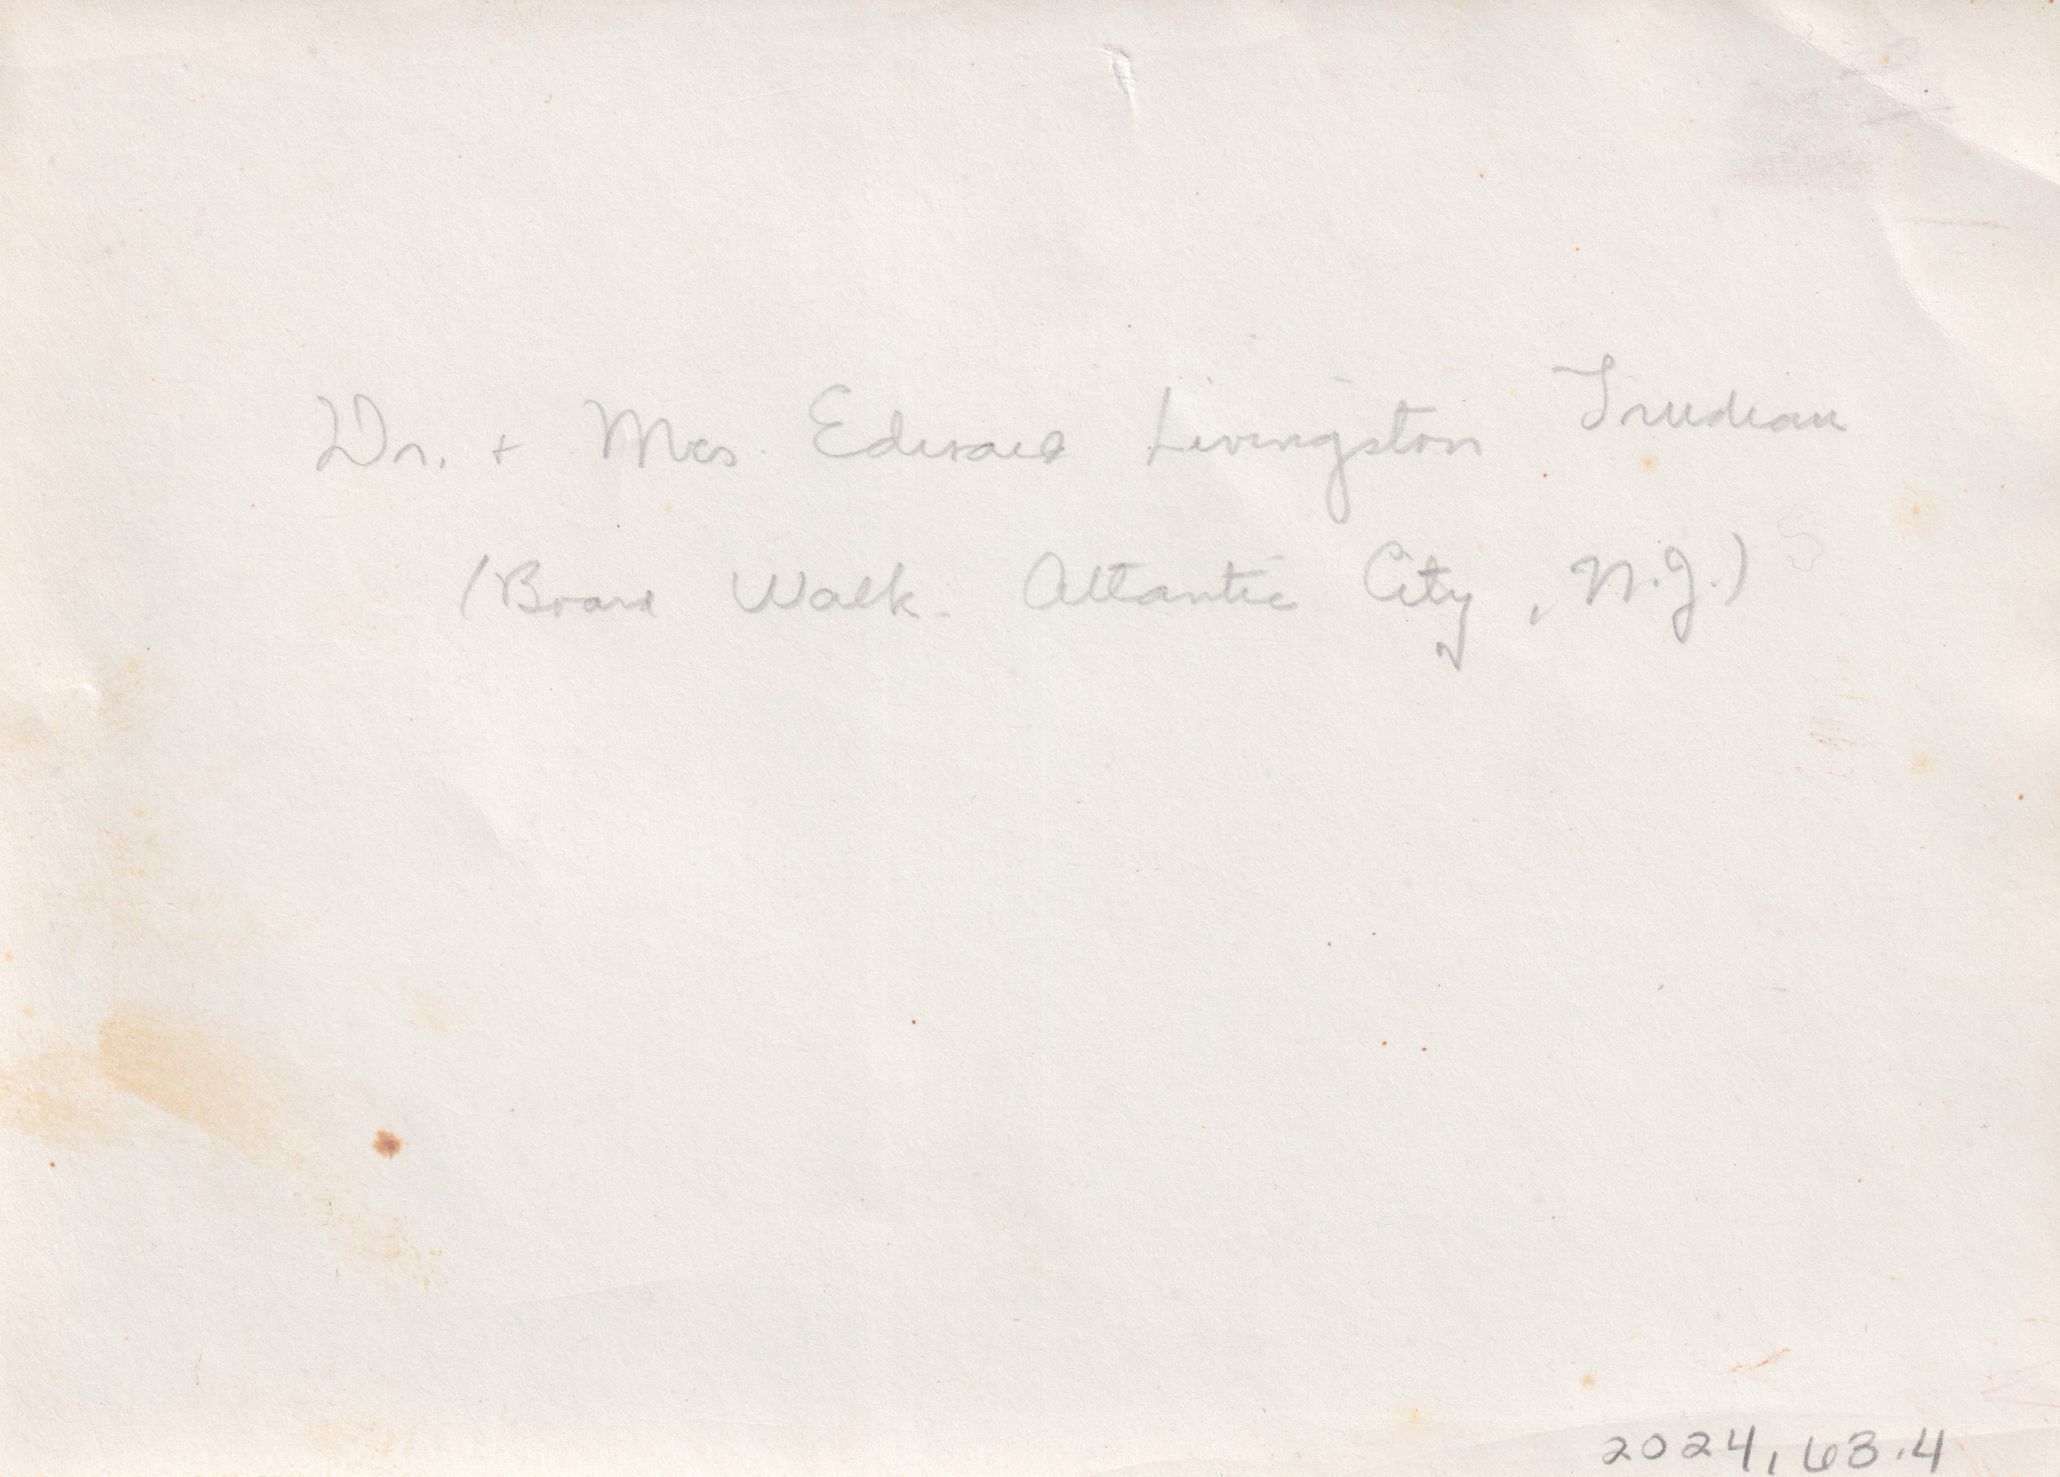 Dr. + Mrs Edward Livingston Trudeau
(Board Walk. Atlantic City, N.J.)
2024.63.4